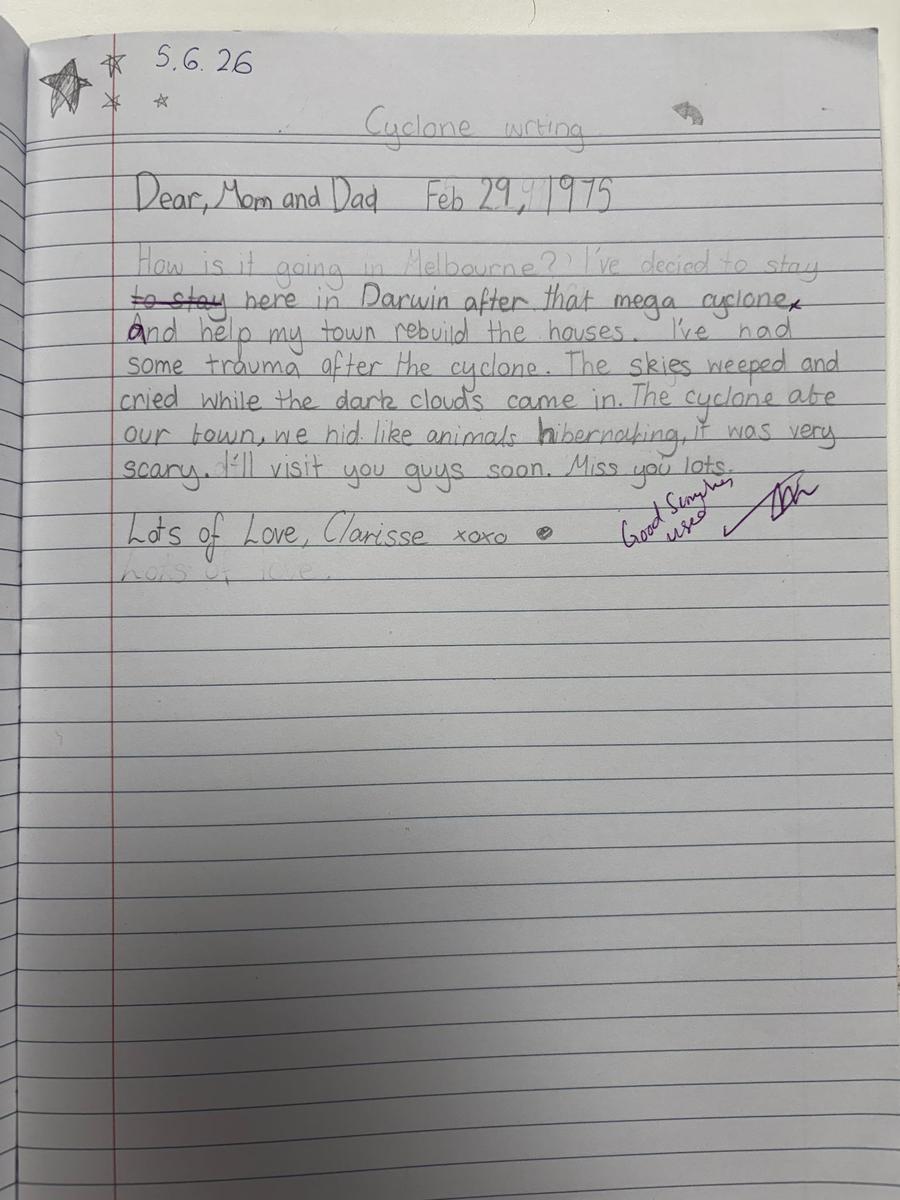 5.6.26
Cyclone wrting
Dear, Mom and Dad Feb 29, 1975
How is it going in Melbourne? I've decied to stay
to stay here in Darwin after that mega cyclone
And help my town rebuild the houses. I've had
some trauma after the cyclone. The skies weeped and
cried while the dark clouds came in. The cyclone ate
our town, we hid like animals hibernating, it was very
scary. I'll visit you guys soon. Miss you lots.
Good
used
Lots of Love, Clarisse xoxo
Lots of love.